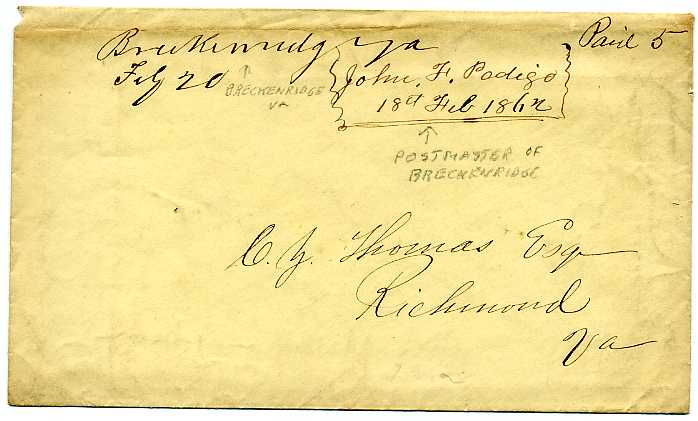 Breckenridg Va
Feb 20
↑
BRECKENRIDGE
VA
John F. Pedigo
18th Feb 1862
Paid 5
↑
POSTMASTER OF
BRECKENRIDGE
C. Y. Thomas Esq
Richmond
Va